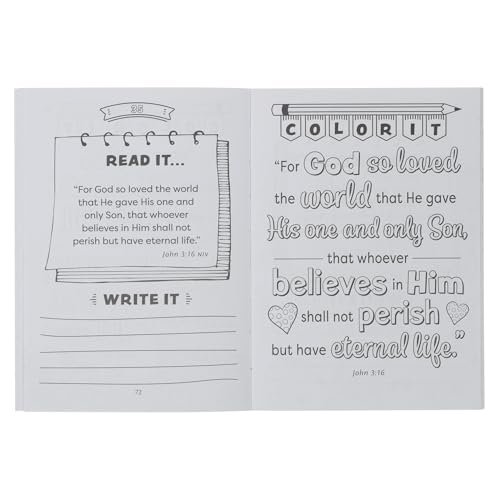 35
READ IT...
"For God so loved the world
that He gave His one and
only Son, that whoever
believes in Him shall not
perish but have eternal life."
John 3:16 NIV
WRITE IT
72
COLOR IT
"For God so loved
the world that He gave
His one and only Son,
that whoever
believes in Him
shall not perish
but have eternal life."
John 3:16